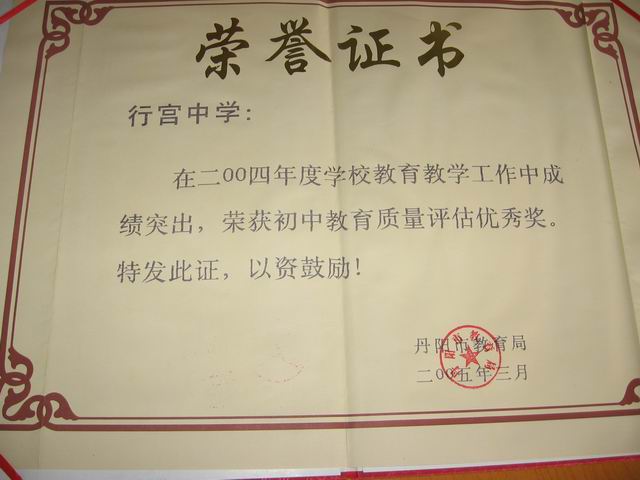 荣誉证书
行宫中学：
在二00四年度学校教育教学工作中成
绩突出，荣获初中教育质量评估优秀奖。
特发此证，以资鼓励！
丹阳市教育局
二00五年三月